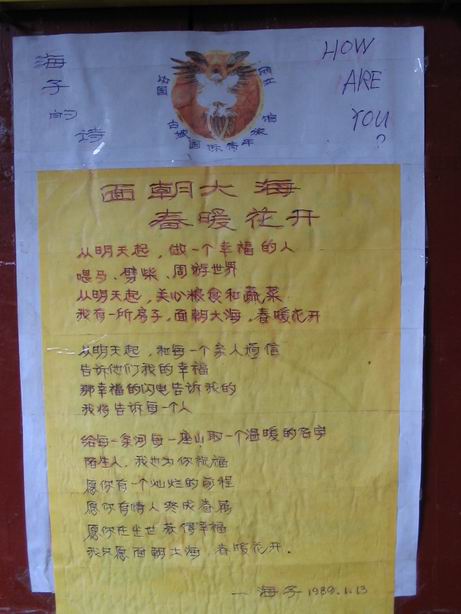 海子的诗
HOW
ARE
YOU
?
古城国际青年
面朝大海
春暖花开
从明天起，做一个幸福的人
喂马、劈柴、周游世界
从明天起，关心粮食和蔬菜
我有一所房子，面朝大海，春暖花开
从明天起，和每一个亲人通信
告诉他们我的幸福
那幸福的闪电告诉我的
我将告诉每一个人
给每一条河每一座山取一个温暖的名字
陌生人，我也为你祝福
愿你有一个灿烂的前程
愿你有情人终成眷属
愿你在尘世获得幸福
我只愿面朝大海，春暖花开.
—海子1989.1.13